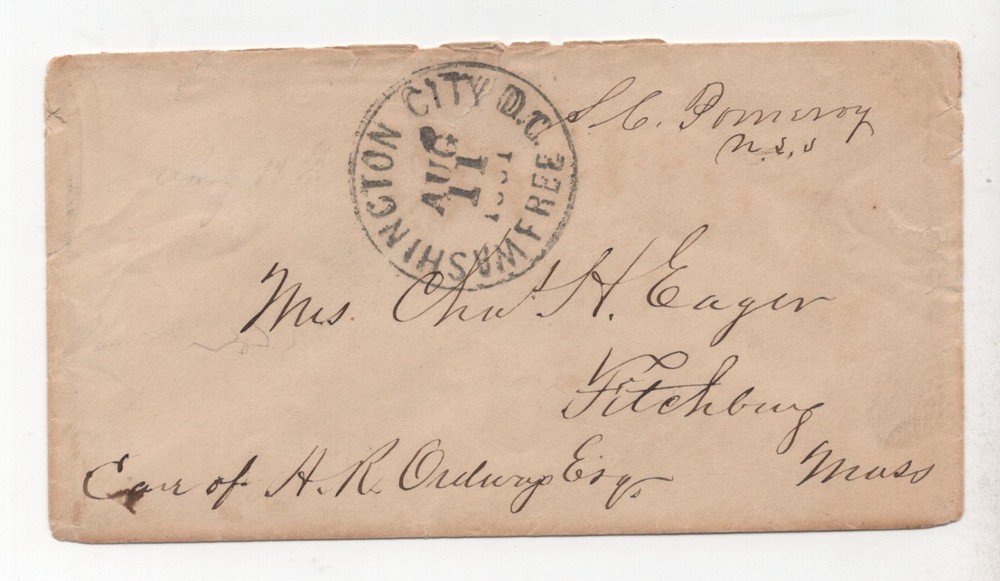 S. C. Pomeroy
U.S.S
WASHINGTON CITY D.C. FREE
AUG
11
1861
Mrs. Chas. H. Eager
Fitchburg
Mass
Care of H. R. Ordway Esq.